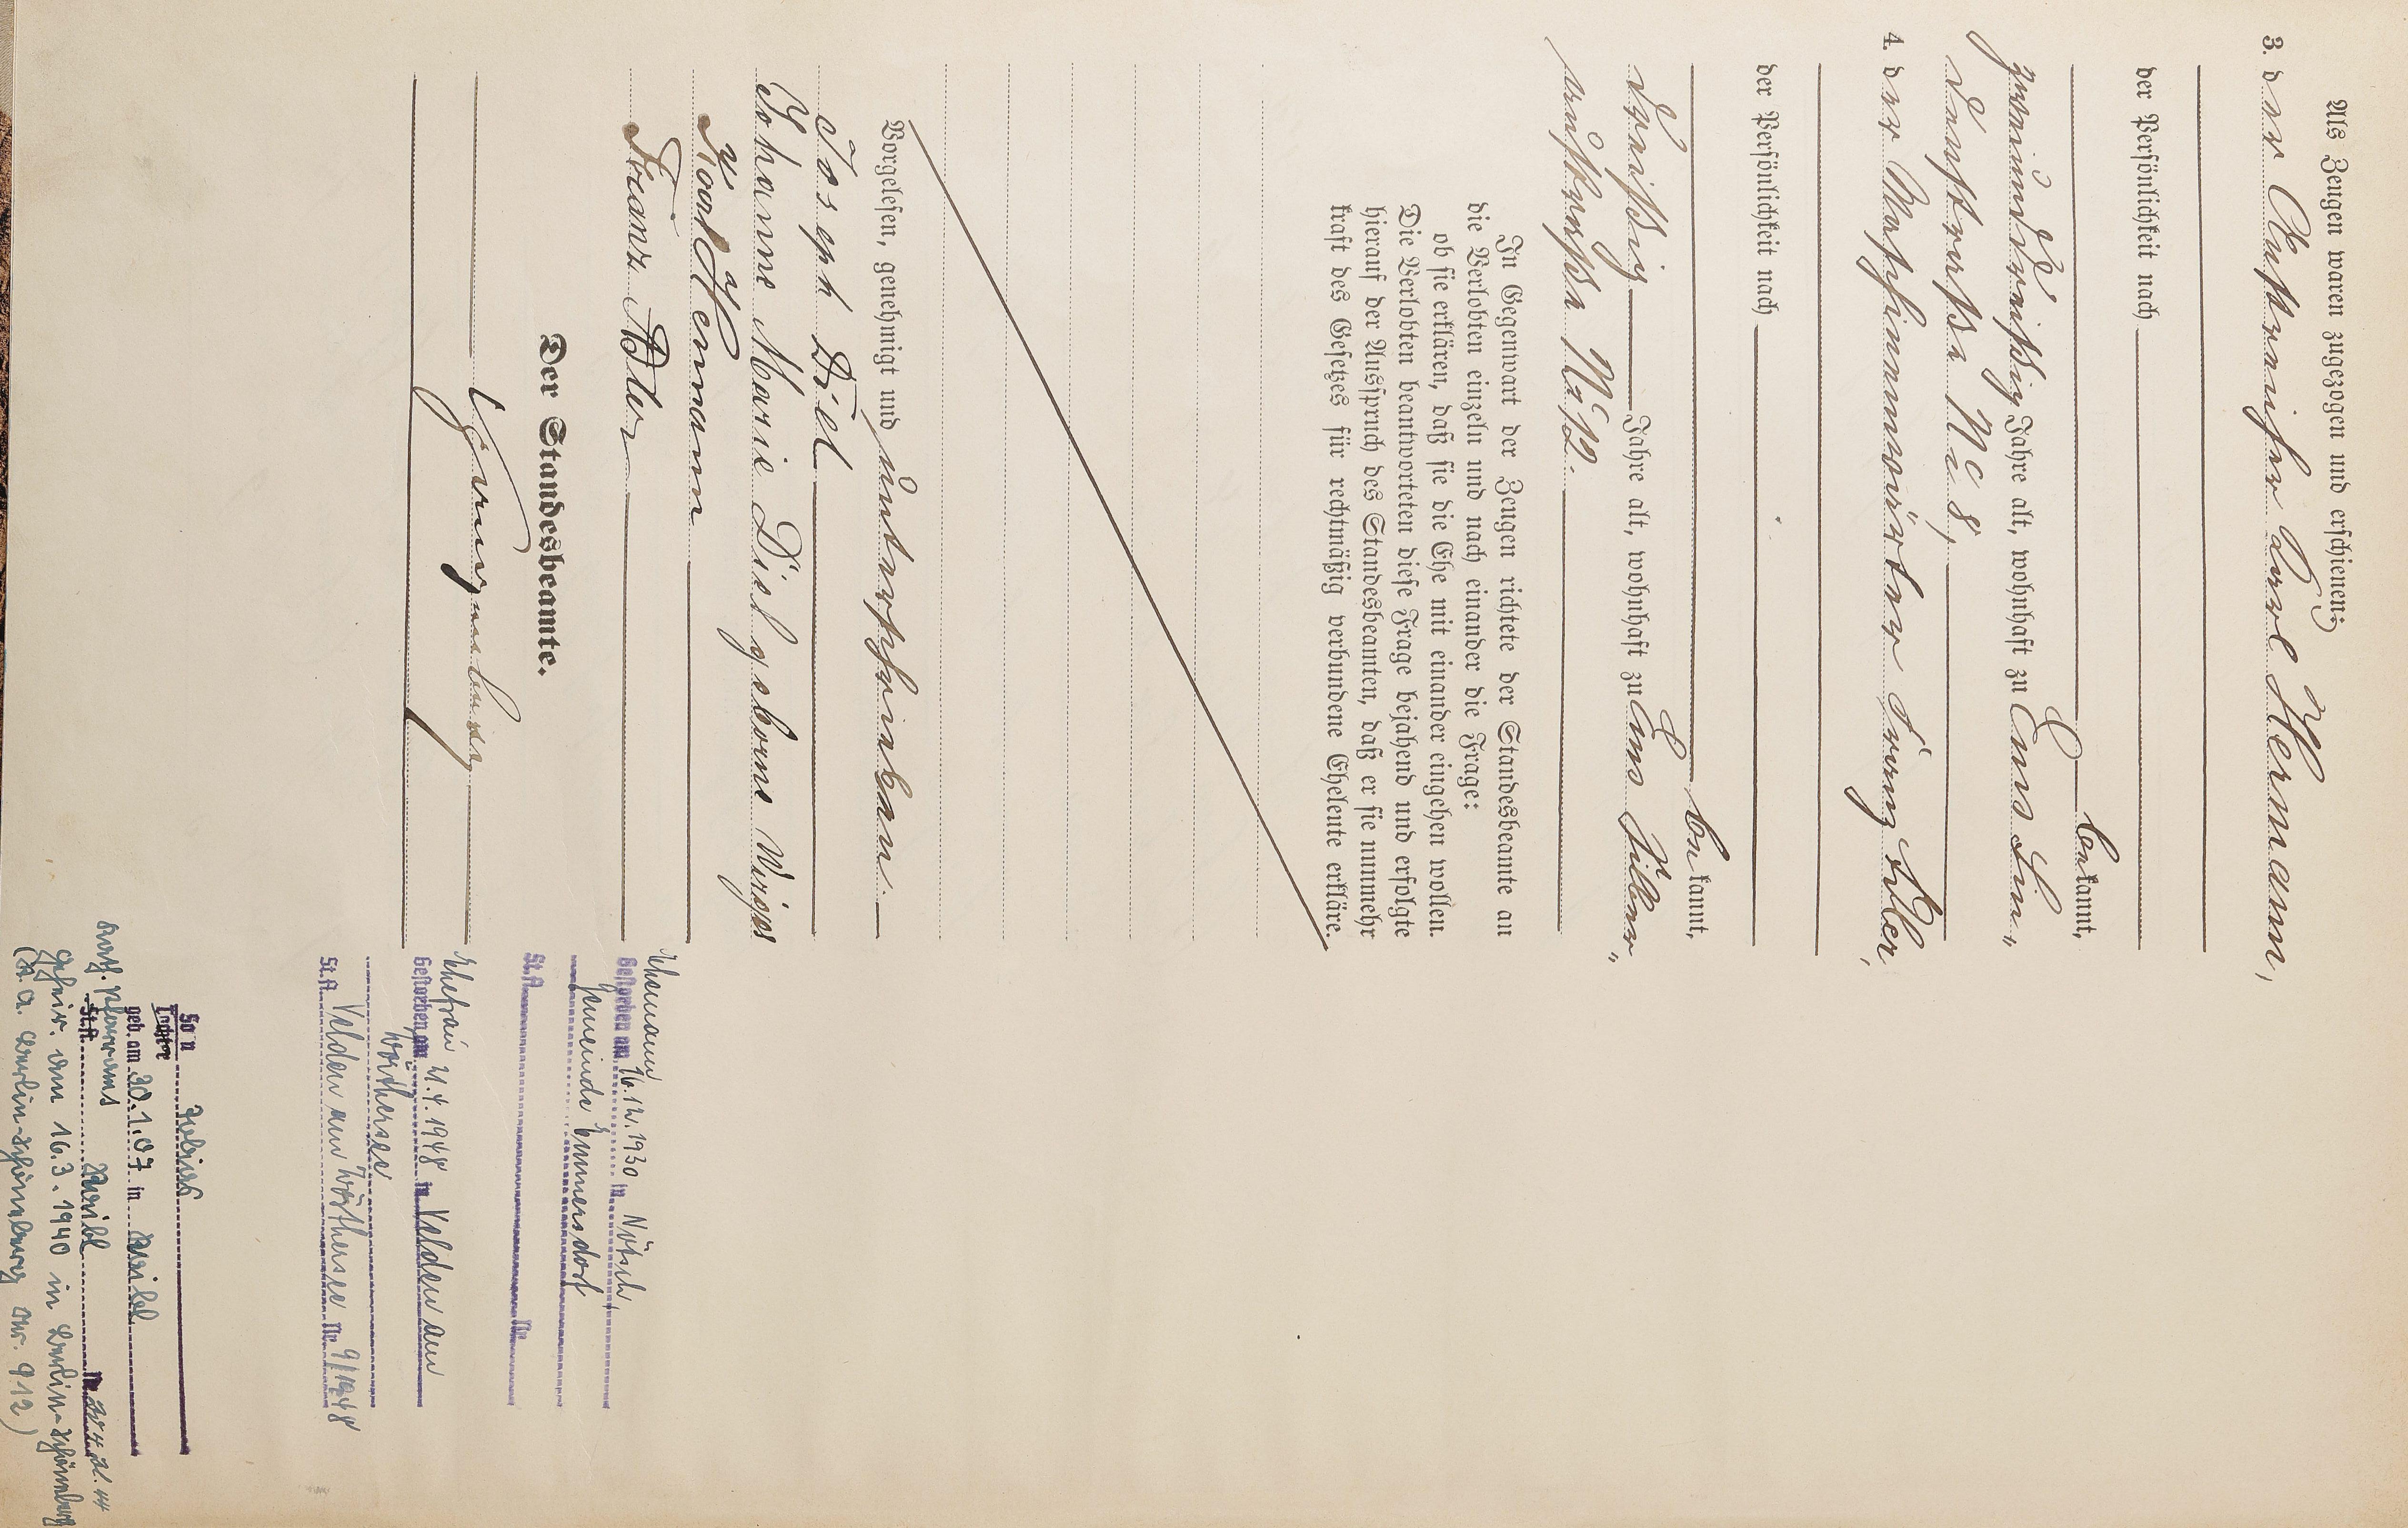 Als Zeugen waren zugezogen und erschienen:
3. der Aufseher Karl Hermann,
der Persönlichkeit nach
bekannt,
zweiunddreißig Jahre alt, wohnhaft zu Ems
No 8,
4. der Franz Adler,
der Persönlichkeit nach
bekannt,
dreißig Jahre alt, wohnhaft zu Ems
No 12.
In Gegenwart der Zeugen richtete der Standesbeamte an
die Verlobten einzeln und nach einander die Frage:
ob sie erklären, daß sie die Ehe mit einander eingehen wollen.
Die Verlobten beantworteten diese Frage bejahend und erfolgte
hierauf der Ausspruch des Standesbeamten, daß er sie nunmehr
kraft des Gesetzes für rechtmäßig verbundene Eheleute erkläre.
Vorgelesen, genehmigt und unterschrieben.
Joseph Diel
Johanne Marie Diel geborne Wirges
Karl Hermann
Franz Adler
Der Standesbeamte.
Ehemann
Gestorben am 16.12.1930 in Nötsch,
Gemeinde Emmersdorf
St.A. Nr.
Ehefrau
Gestorben am 21.4.1948 in Velden am
Wörthersee
St.A. Velden am Wörthersee Nr. 9/1948
Sohn
Tochter
geb. am 30.1.07 in
kath. Pfarramt
St.A. Nr.
Geheir. am 16.3.1940 in Berlin-Schöneberg
(St.A. Berlin-Schöneberg Nr. 912)